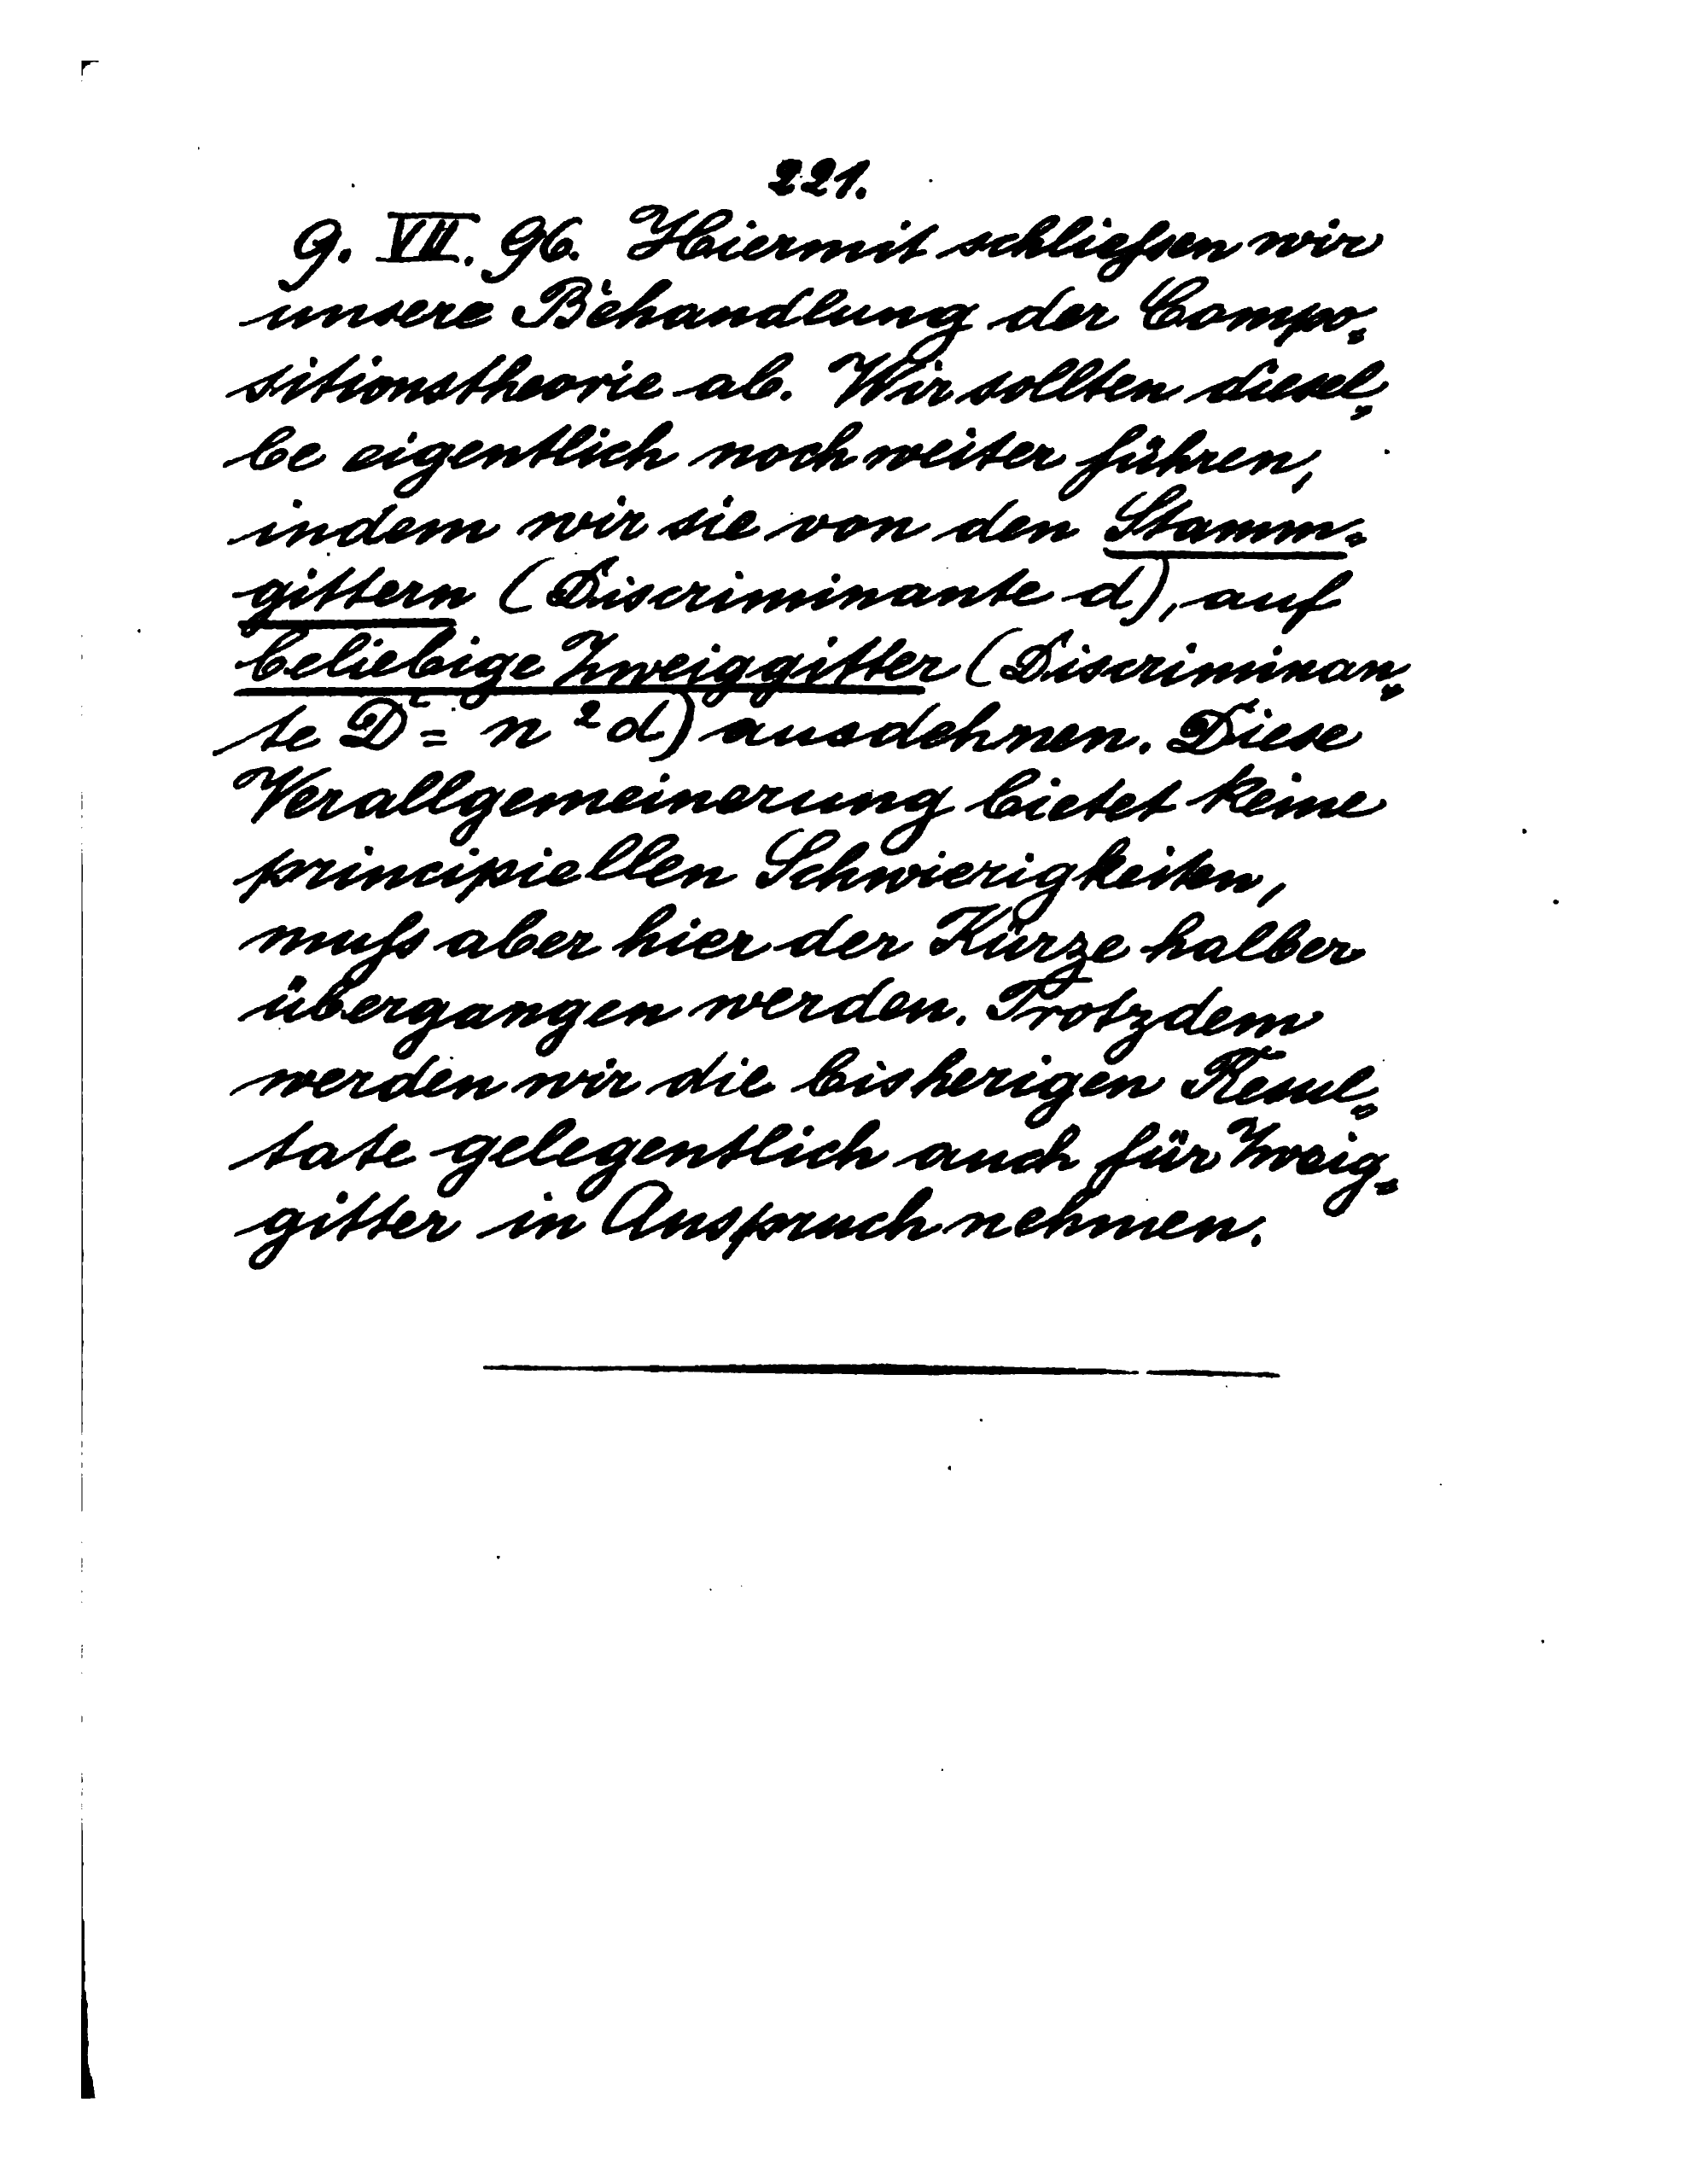 221.
9. VII. 96. Hiermit schließen wir
unsere Behandlung der Compo-
sitionstheorie ab. Wir sollten diesel-
be eigentlich noch weiter führen,
indem wir sie von den Stamm-
gittern (Discriminante d), auf
beliebige Zweiggitter (Discriminan-
te D = n²d) ausdehnen. Diese
Verallgemeinerung bietet keine
principiellen Schwierigkeiten,
muß aber hier der Kürze halber
übergangen werden. Trotzdem
werden wir die bisherigen Resul-
tate gelegentlich auch für Zweig-
gitter in Anspruch nehmen.